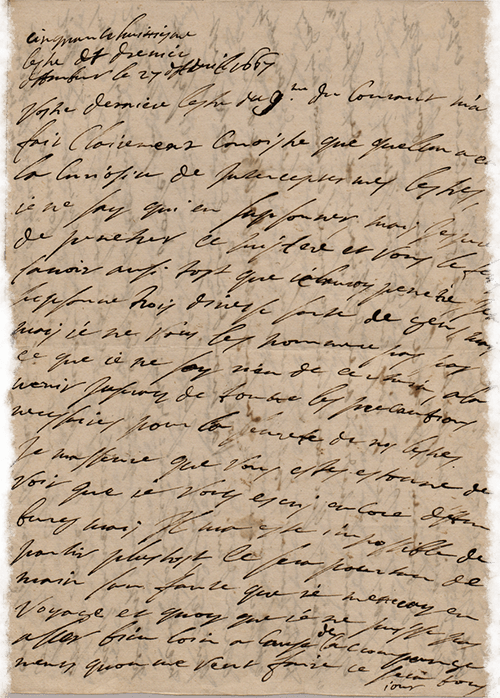 cinquante huitiesme
lestre et derniere
d'hambour le 27 d'avril 1667
Vostre derniere lestre du 9me du Courant m'a
fait Clairement Conoistre que quelqun a eu
la Curiosité de Intercepter mes lestres,
ie ne say qui en soupsonner, mais
de penetrer ce mistere et vous le
savoir aussi tost que ie l'auray penetré
soupsonne trois diverse sorte de gens, mais
mais ie ne vous les nommeré pas
ce que ie ne say rien de certain, a la
venir de toute les precautions
necessaires pour la seureté de nos lestres.
Je m'assure que vous estes estonné de
voir que ie vous escri encore d'ham
burg mais Il m'a esté impossible de
partir plustost, ce sera pour de
main sans faute que ie me mettray en
voyage et quoy que ie ne puisse pas
aller bien loin a Cause de la compagnie
mens qu'on me veut faire ce
iour